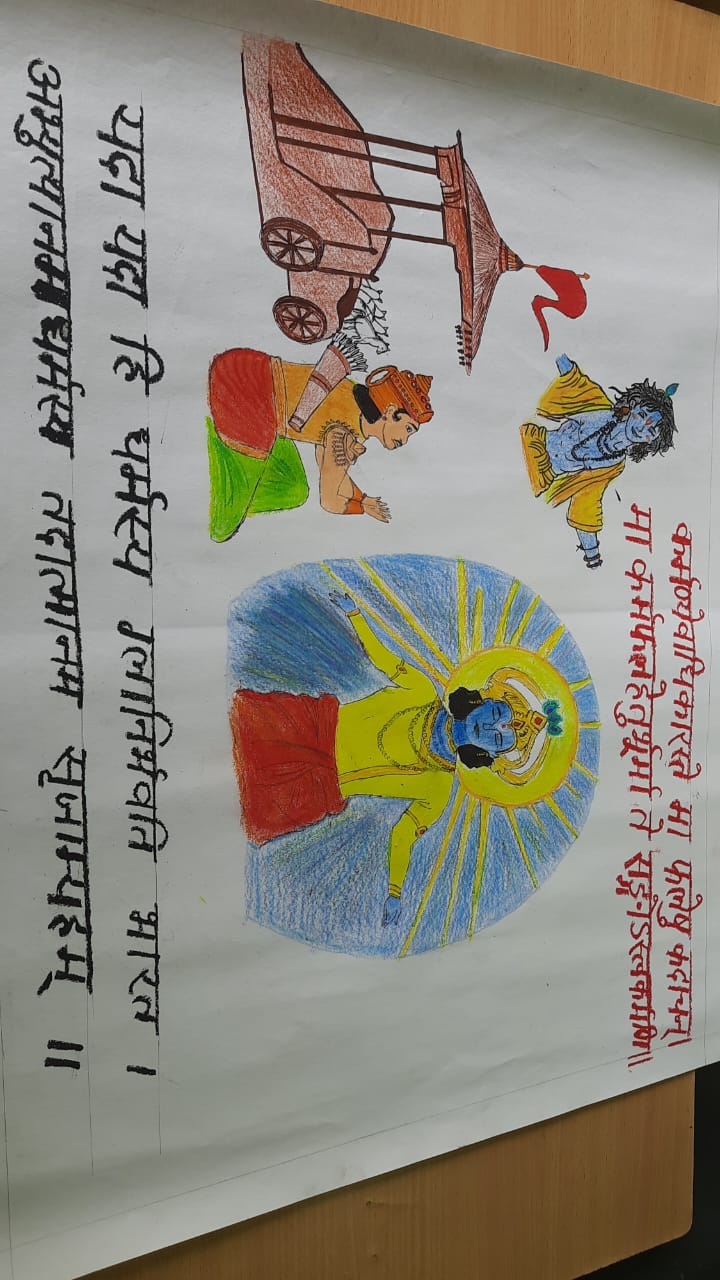 कर्मण्येवाधिकारस्ते मा फलेषु कदाचन्।
मा कर्मफलहेतुर्भूर्मा ते सङ्गोऽस्त्वकर्मणि॥
यदा यदा हि धर्मस्य ग्लानिर्भवति भारत ।
अभ्युत्थानमधर्मस्य तदात्मानम सृजाम्यहम् ॥